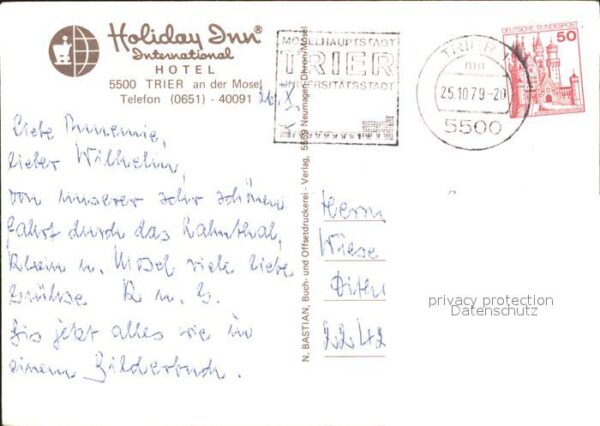 Holiday Inn®
International
HOTEL
5500 TRIER an der Mosel
Telefon (0651) - 40091
MOSELHAUPTSTADT
TRIER
UNIVERSITÄTSSTADT
TRIER 1
mn
25.10.79-20
5500
DEUTSCHE BUNDESPOST
50
Liebe Annemie,
lieber Wilhelm,
von unserer sehr schönen
Fahrt durch das Lahnthal,
Rhein u. Mosel viele liebe
Grüße
Bis jetzt alles wie in
einem Bilderbuch.
N. BASTIAN, Buch- und Offsetdruckerei - Verlag, 5559 Neumagen-Dhron/Mosel
Herrn
Wiese
2242
privacy protection
Datenschutz